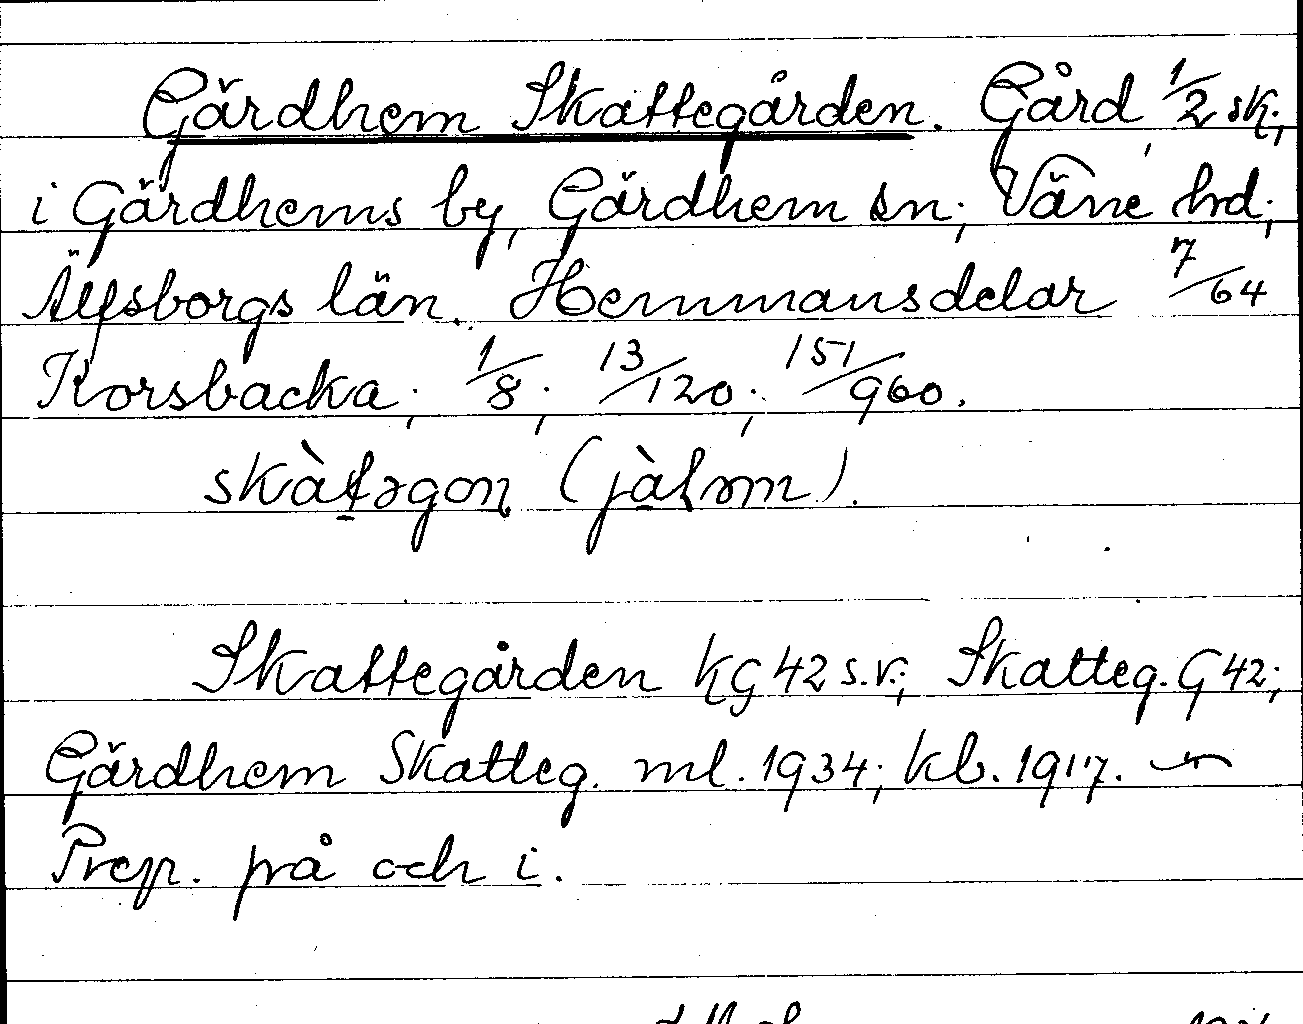 Gärdhem Skattegården. Gård, 1/2 sk;
i Gärdhems by, Gärdhem sn; Väne hd;
Älfsborgs län. Hemmansdelar 7/64
Korsbacka; 1/8; 13/120; 151/960.
skàt̯əgon (jàl̯əm).
Skattegården KG 42 s.v.; Skatteg. G 42;
Gärdhem Skatteg. ml. 1934; kb. 1917. —
Prep. på och i.